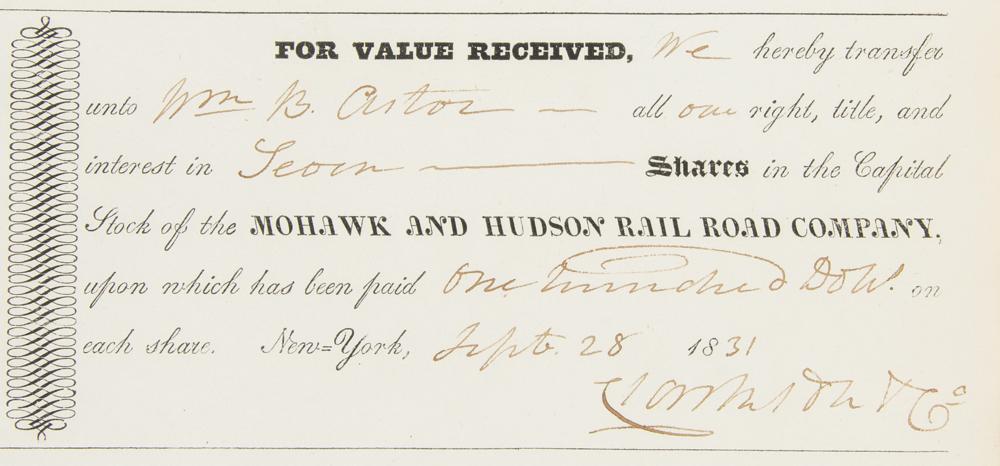 FOR VALUE RECEIVED, We hereby transfer
unto Wm B. Astor — all our right, title, and
interest in Seven — Shares in the Capital
Stock of the MOHAWK AND HUDSON RAIL ROAD COMPANY,
upon which has been paid One hundred Dolls. on
each share. New=York, Sept. 28 1831
Clarkson & Co